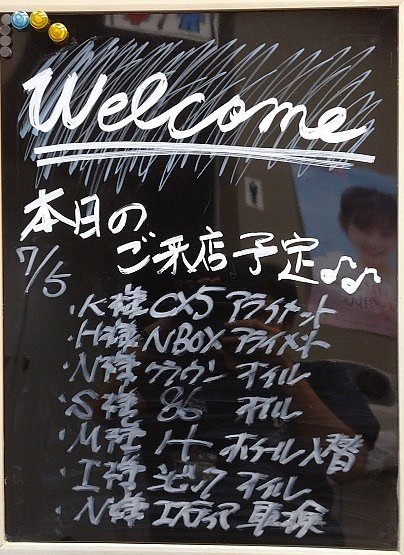 Welcome
本日の
7/5 ご来店予定♪♫
・K様 CX5 アライメント
・H様 NBOX アライメント
・N様 クラウン オイル
・S様 86 オイル
・M様 ホイール入替
・I様 シビック オイル
・N様 車検